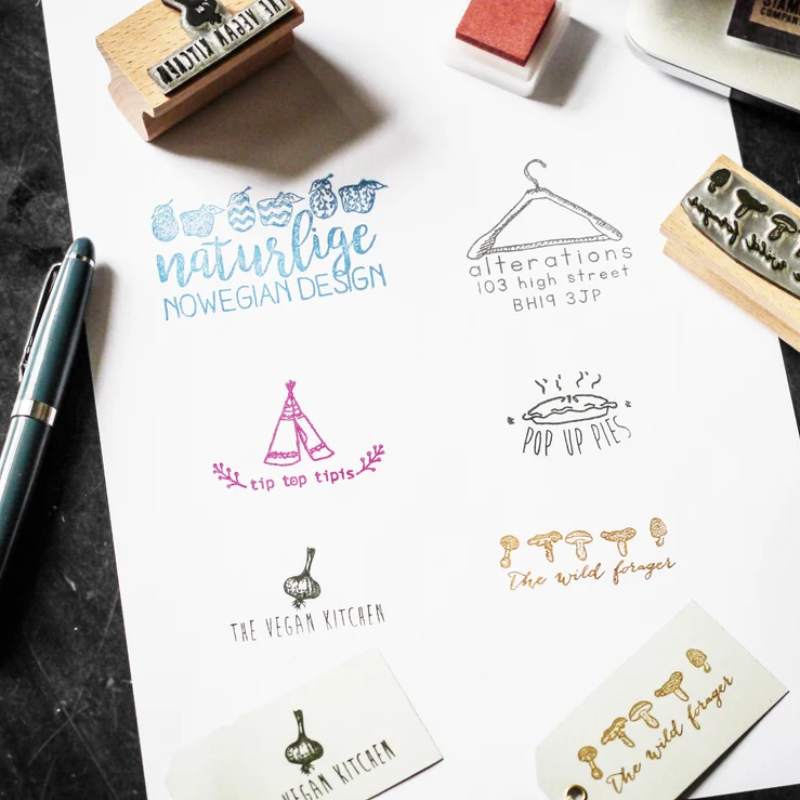 THE VEGAN KITCHEN
STAMP
COMPANY
naturlige
NOWEGIAN DESIGN
alterations
103 high street
BH19 3JP
tip top tipis
POP UP PIES
The wild forager
THE VEGAN KITCHEN
VEGAN KITCHEN
The wild forager